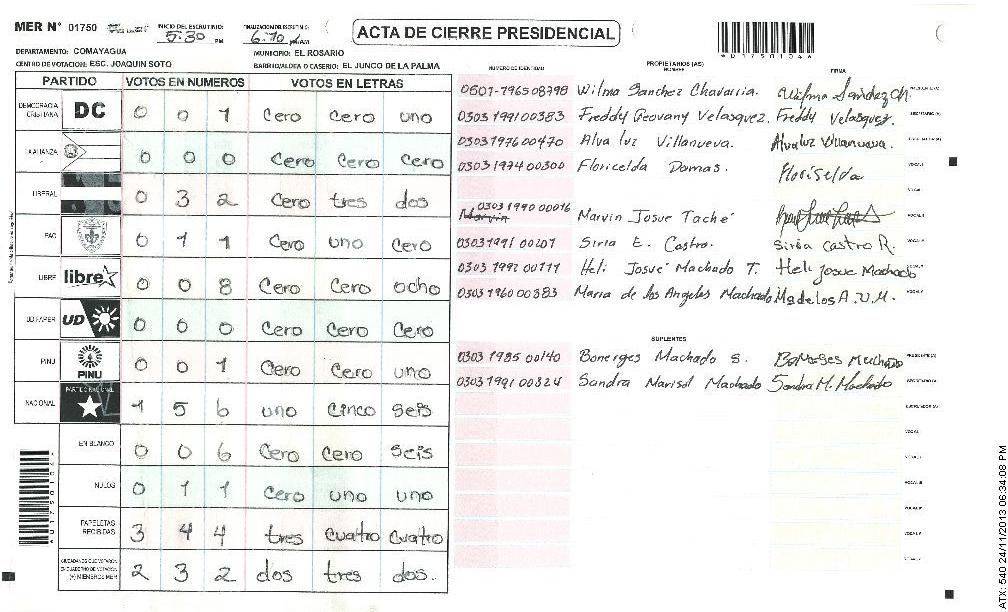 MER N° 01750 INICIO DEL ESCRUTINIO: 5:30 PM FINALIZACION DEL ESCRUTINIO: AM
ACTA DE CIERRE PRESIDENCIAL
DEPARTAMENTO: COMAYAGUA MUNICIPIO: EL ROSARIO
CENTRO DE VOTACION: ESC. JOAQUIN SOTO BARRIO/ALDEA O CASERIO: EL JUNCO DE LA PALMA
PARTIDO VOTOS EN NUMEROS VOTOS EN LETRAS
DEMOCRACIA CRISTIANA DC 0 0 1 Cero Cero uno
ALIANZA 0 0 0 Cero Cero Cero
LIBERAL 0 3 2 Cero tres dos
PAC 0 1 1 Cero uno Cero
LIBRE libre 0 0 8 Cero Cero ocho
UD FAPER UD 0 0 0 Cero Cero Cero
PINU PINU 0 0 1 Cero Cero uno
NACIONAL PARTIDO NACIONAL 1 5 6 uno cinco seis
EN BLANCO 0 0 6 Cero Cero seis
NULOS 0 1 1 Cero uno uno
PAPELETAS RECIBIDAS 3 4 4 tres cuatro cuatro
CIUDADANOS QUE VOTARON EN CUADERNO DE VOTACION (+) MIEMBROS MER 2 3 2 dos tres dos.
NUMERO DE IDENTIDAD PROPIETARIOS (AS) NOMBRE FIRMA
0501-1965 08798 Wilma Sanchez Chavarria. Wilma Sanchez Ch
0303 1991 00383 Freddy Geovany Velasquez. Freddy Velasquez.
0303 1976 00470 Alva luz Villanueva. Alvaluz Villanueva.
0303 1974 00300 Floricelda Damas. Floriselda
0303 1990 00016 Marvin Josue Taché
0303 1991 00207 Siria E. Castro. Siria Castro R.
0303 1992 00111 Heli Josué Machado T. Heli Josue Machado
0303 1960 00383 Maria de los Angeles Machado
SUPLENTES
0303 1985 00140 Bonerges Machado s.
0303 1991 00324 Sandra Marisol Machado Sandra M. Machado
ATX: 540 24/11/2013 06:34:08 PM